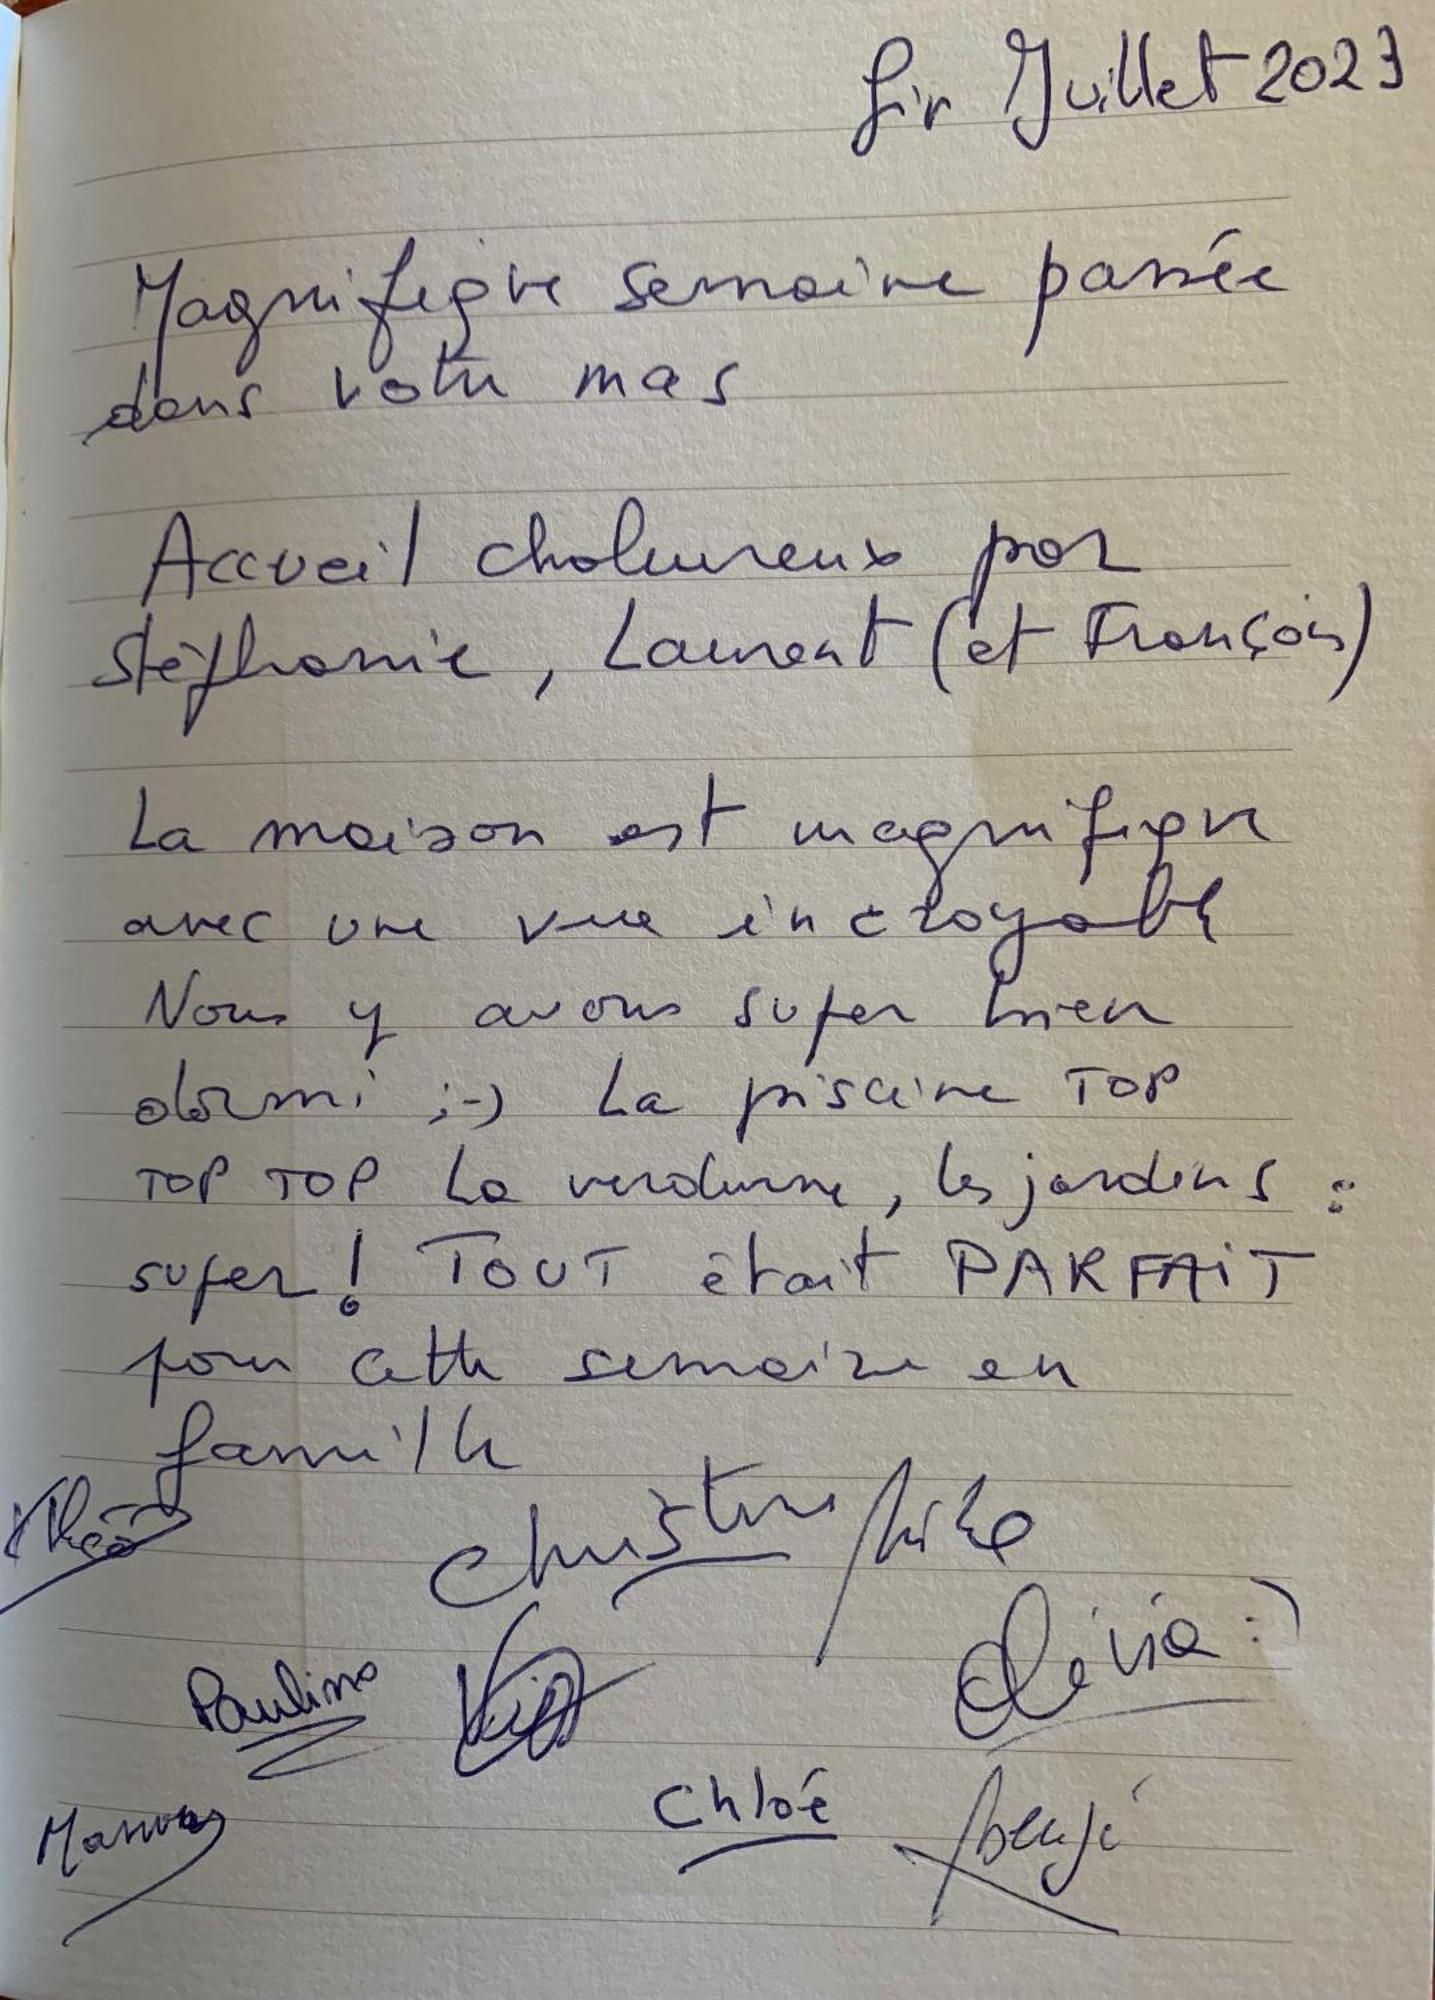 fin Juillet 2023
Magnifique semaine passée
dans votre mas
Accueil chaleureux par
Stéphanie, Laurent (et François)
La maison est magnifique
avec une vue incroyable
Nous y avons super bien
dormi ;-) La piscine TOP
TOP TOP La verdure, les jardins :
super ! TOUT était PARFAIT
pour cette semaine en
famille
Théo
Christine Mike
Pauline
Olivia :)
Chloé Benji